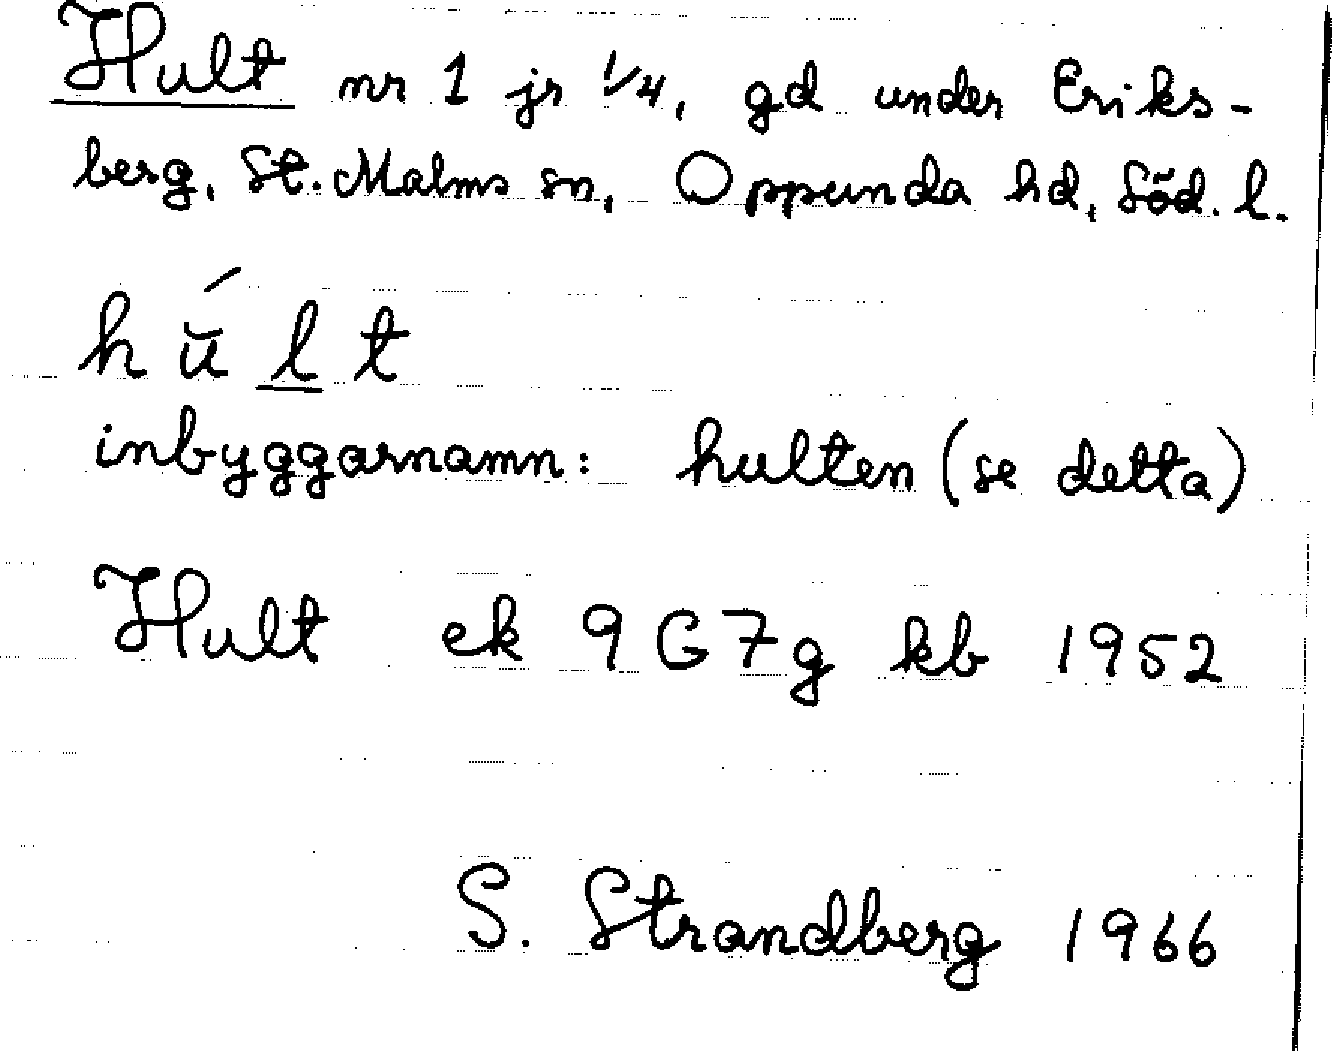 Hult nr 1 jr 1/4, gd under Eriks-
berg, St. Malms sn, Oppunda hd, Söd. l.
hū́lt
inbyggarnamn: hulten (se detta)
Hult ek 9G7g kb 1952
S. Strandberg 1966